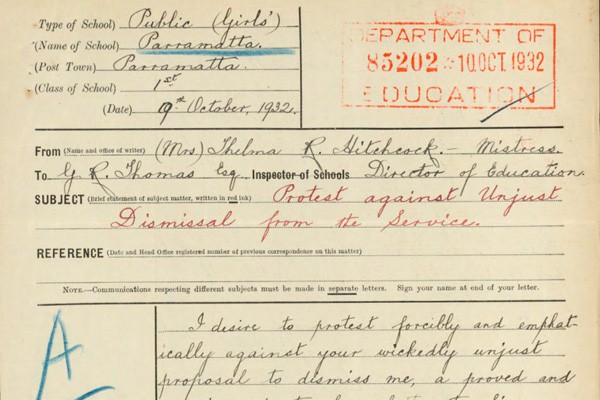 (Type of School) Public (Girls')
(Name of School) Parramatta.
(Post Town) Parramatta.
(Class of School) 1st
(Date) 9th October, 1932.
DEPARTMENT OF
85202 10OCT.1932
EDUCATION
From (Name and office of writer) (Mrs) Thelma R. Hitchcock. - Mistress.
To G. R. Thomas Esq. Inspector of Schools Director of Education.
SUBJECT (Brief statement of subject matter, written in red ink) Protest against Unjust
Dismissal from the Service.
REFERENCE (Date and Head Office registered number of previous correspondence on this matter)
NOTE.—Communications respecting different subjects must be made in separate letters. Sign your name at end of your letter.
A
I desire to protest forcibly and emphat-
ically against your wickedly unjust
proposal to dismiss me, a proved and